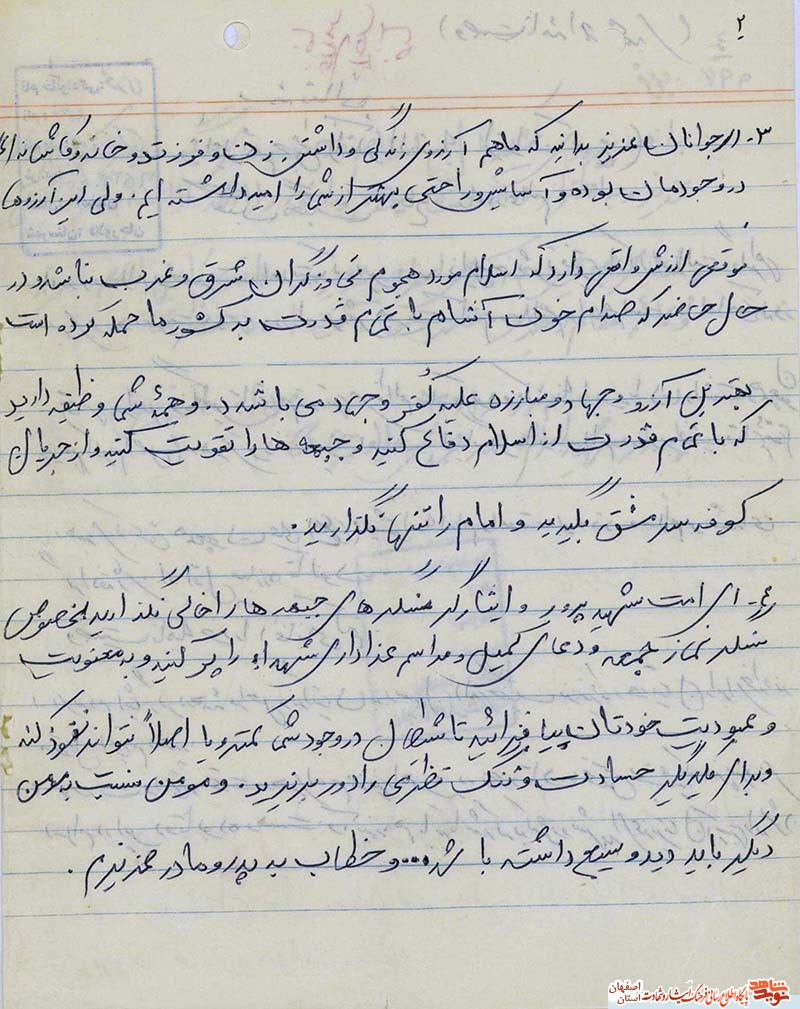 ۲
۳- ای جوانان عزیز بدانید که ما هم آرزوی زندگی و داشتن زن و فرزند و خانه و کاشانه ای
در وجودمان بوده و آسایش و راحتی بهتر از شما را امید داشته ایم. ولی این آرزوها
موقعی ارزش واقعی دارد که اسلام مورد هجوم تجاوزگران شرق و غرب نباشد و در
حال حاضر که صدام خون آشام با تمام قدرت به کشور ما حمله کرده است
بهترین آرزو جهاد و مبارزه علیه کفر و جهاد می باشد. و همهٔ شما وظیفه دارید
که با تمام قدرت از اسلام دفاع کنید و جبهه ها را تقویت کنید و از جریان
کوفه سرمشق بگیرید و امام را تنها نگذارید.
۴- ای امت شهید پرور و ایثارگر سنگرهای جبهه ها را خالی نگذارید بخصوص
سنگر نماز جمعه و دعای کمیل و مراسم عزاداری شهداء را پر کنید و به معنویت
و عبودیت خودتان بیافزائید تا شیطان در وجود شما کمتر و یا اصلاً نتواند نفوذ کند
و برای یکدیگر حسادت و تنگ نظری را دور بریزید. و مومن نسبت به مومن
دیگر باید دید وسیع داشته باشد... و خطاب به پدر و مادر عزیزم.
نوید شاهد
پایگاه اطلاع رسانی فرهنگ ایثار و شهادت استان اصفهان